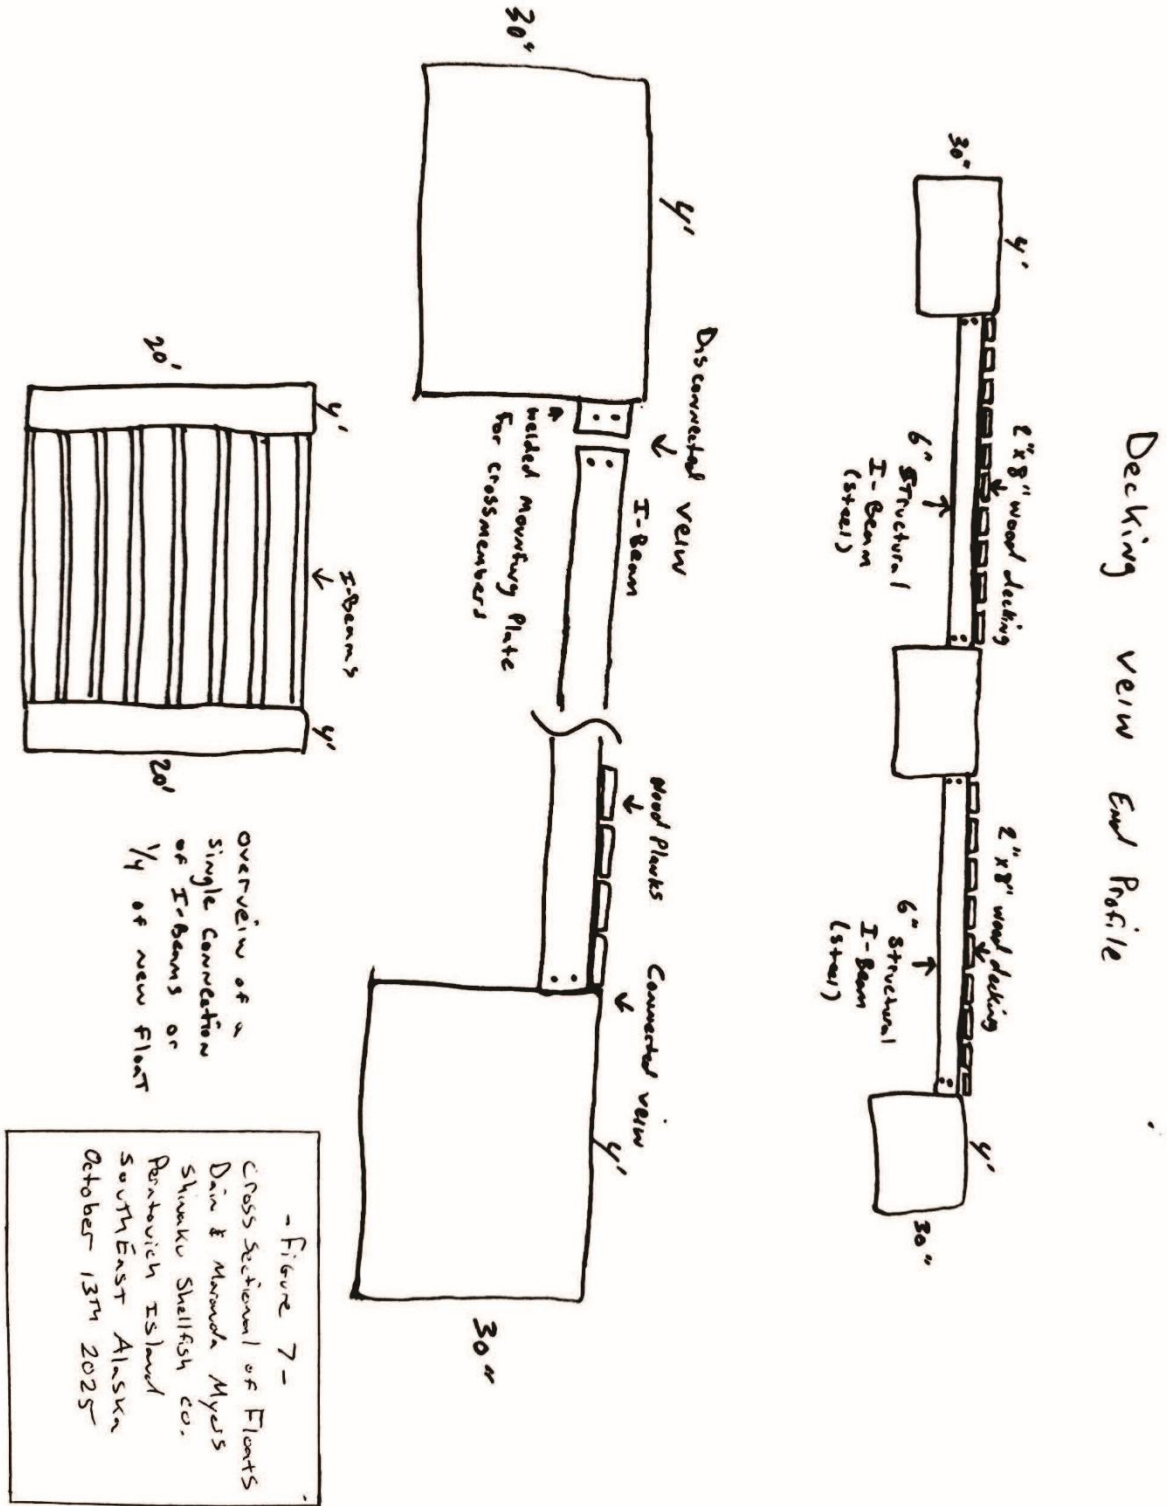 Decking veiw End Profile
30"
4'
2"x8" wood decking
6" structural
I-Beam
(steel)
2"x8" wood decking
6" structural
I-Beam
(steel)
4'
30"
30"
4'
Disconnected veiw
I-Beam
welded mounting Plate
for crossmembers
Wood Planks
Connected veiw
4'
30"
20'
4'
I-Beams
4'
20'
overveiw of a
single connection
of I-Beams or
1/4 of new float
- Figure 7 -
Cross Sectional of Floats
Dain & Maranda Myers
Shinaku Shellfish co.
Peratovich Island
SouthEast Alaska
October 13TH 2025